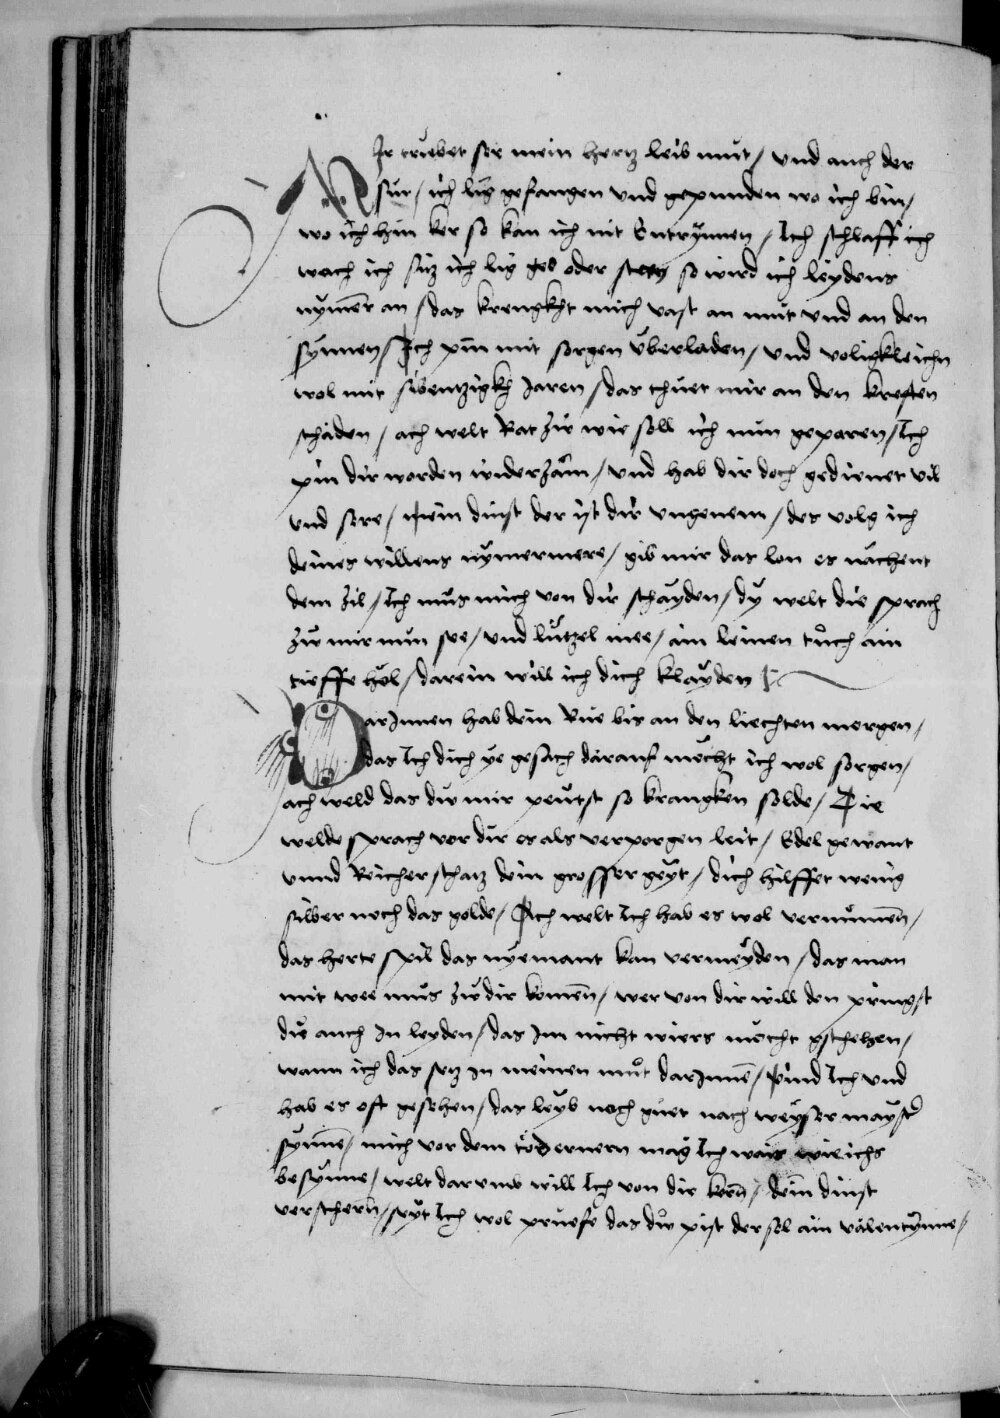 Mir truebet ser mein hertz leib mut / und auch der
sin / ich lig gefangen und gepunden wo ich bin /
wo ich hin ker so kan ich nit Entrynnen / Ich schlaff ich
wach ich siz ich lig gee oder steen so wird ich leydens
nymer an / das krengkht mich vast an mut und an den
synnen / Ich pin mit sorgen überladen / und
wol mit sibentzigkh Jaren / das thuet mir an den kreften
schaden / ach welt Rat zw wie soll ich nun geparen / Ich
pin dir worden widerzäm / und hab dir doch gedienet vil
und sere / mein dinst der ist dir ungenem / des volg ich
deines willens nymermere / gib mir das lon es nachent
dem zil / Ich mus mich von dir schayden / dy welt die sprach
zw mir nun see / und lützel mee / ain leinen tuoch ain
tieffe hol / darein will ich dich klayden
Darinnen hab dein Rue bis an den liechten morgen /
das Ich dich ye gesach darauf mecht ich wol sorgen /
ach weld das dw mir peutst so krangken solde / Die
welde sprach vor dir es als verporgen leit / Edel gewant
unnd Reicher schatz dein grosser geyt / dich hilffet wenig
silber noch das golde / Ach welt Ich hab es wol vernumen /
das herte spil das nyemant kan vermeyden / das man
mit wee mus zw dir komen / wer von dir will den pringst
dw auch in leyden / das im nicht wiers mecht gschehen /
wann ich das setz in meinen muot darinne / pind Ich und
hab es oft gesehen / das leyb noch guet nach weyser mayster
synne / mich vor dem mag Ich wais wie ichs
besynne / welt darumb will Ich von dir kern / dein dinst
verschern / seyt Ich wol pruefe das dw pist der sel ain valentynne /